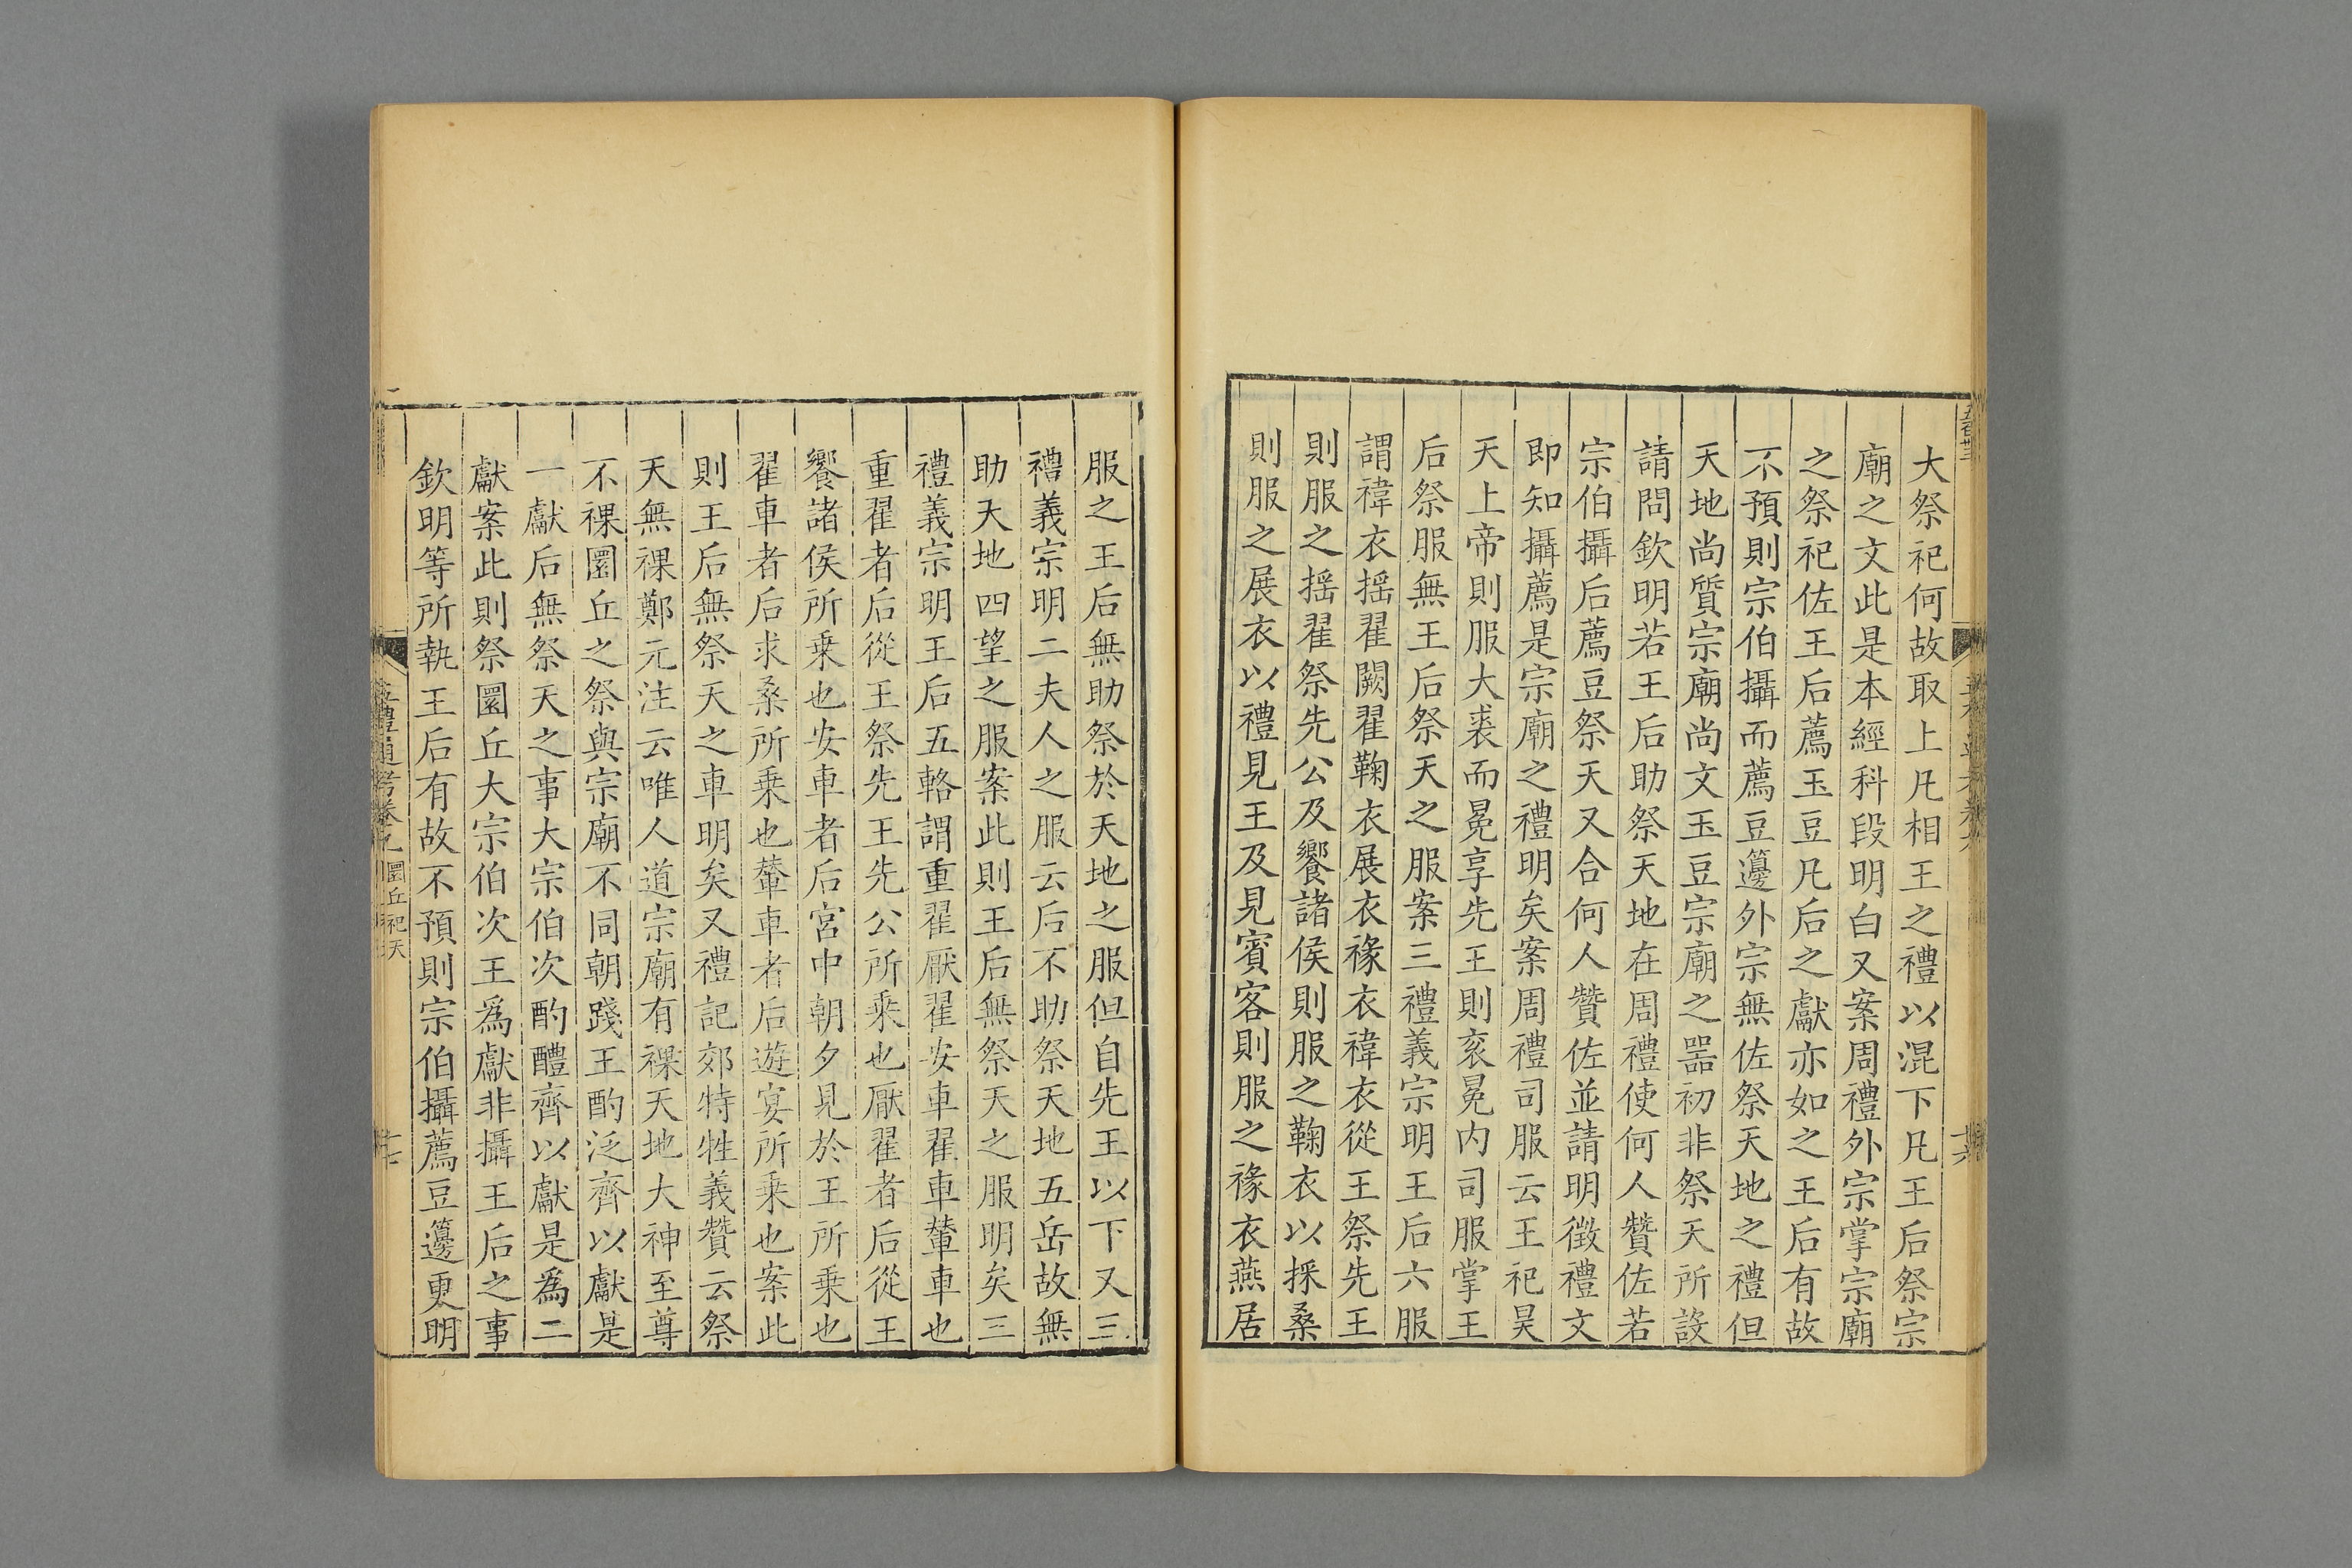 大祭祀何故取上凡相王之禮以混下凡王后祭宗
廟之文此是本經科段明白又案周禮外宗掌宗廟
之祭祀佐王后薦玉豆凡后之獻亦如之王后有故
不預則宗伯攝而薦豆籩外宗無佐祭天地之禮但
天地尚質宗廟尚文玉豆宗廟之器初非祭天所設
請問欽明若王后助祭天地在周禮使何人贊佐若
宗伯攝后薦豆祭天又合何人贊佐並請明徵禮文
即知攝薦是宗廟之禮明矣案周禮司服云王祀昊
天上帝則服大裘而冕享先王則衮冕内司服掌王
后祭服無王后祭天之服案三禮義宗明王后六服
謂褘衣揺翟闕翟鞠衣展衣褖衣褘衣從王祭先王
則服之揺翟祭先公及饗諸侯則服之鞠衣以採桑
則服之展衣以禮見王及見賓客則服之褖衣燕居
服之王后無助祭於天地之服但自先王以下又三
禮義宗明二夫人之服云后不助祭天地五岳故無
助天地四望之服案此則王后無祭天之服明矣三
禮義宗明王后五輅謂重翟厭翟安車翟車輦車也
重翟者后從王祭先王先公所乗也厭翟者后從王
饗諸侯所乗也安車者后宮中朝夕見於王所乗也
翟車者后求桑所乗也輦車者后遊宴所乗也案此
則王后無祭天之車明矣又禮記郊特牲義贊云祭
天無祼鄭元注云唯人道宗廟有祼天地大神至尊
不祼圜丘之祭與宗廟不同朝踐王酌泛齊以獻是
一獻后無祭天之事大宗伯次酌醴齊以獻是爲二
獻案此則祭圜丘大宗伯次王爲獻非攝王后之事
欽明等所執王后有故不預則宗伯攝薦豆籩更明
五禮通考卷 圜丘祀天